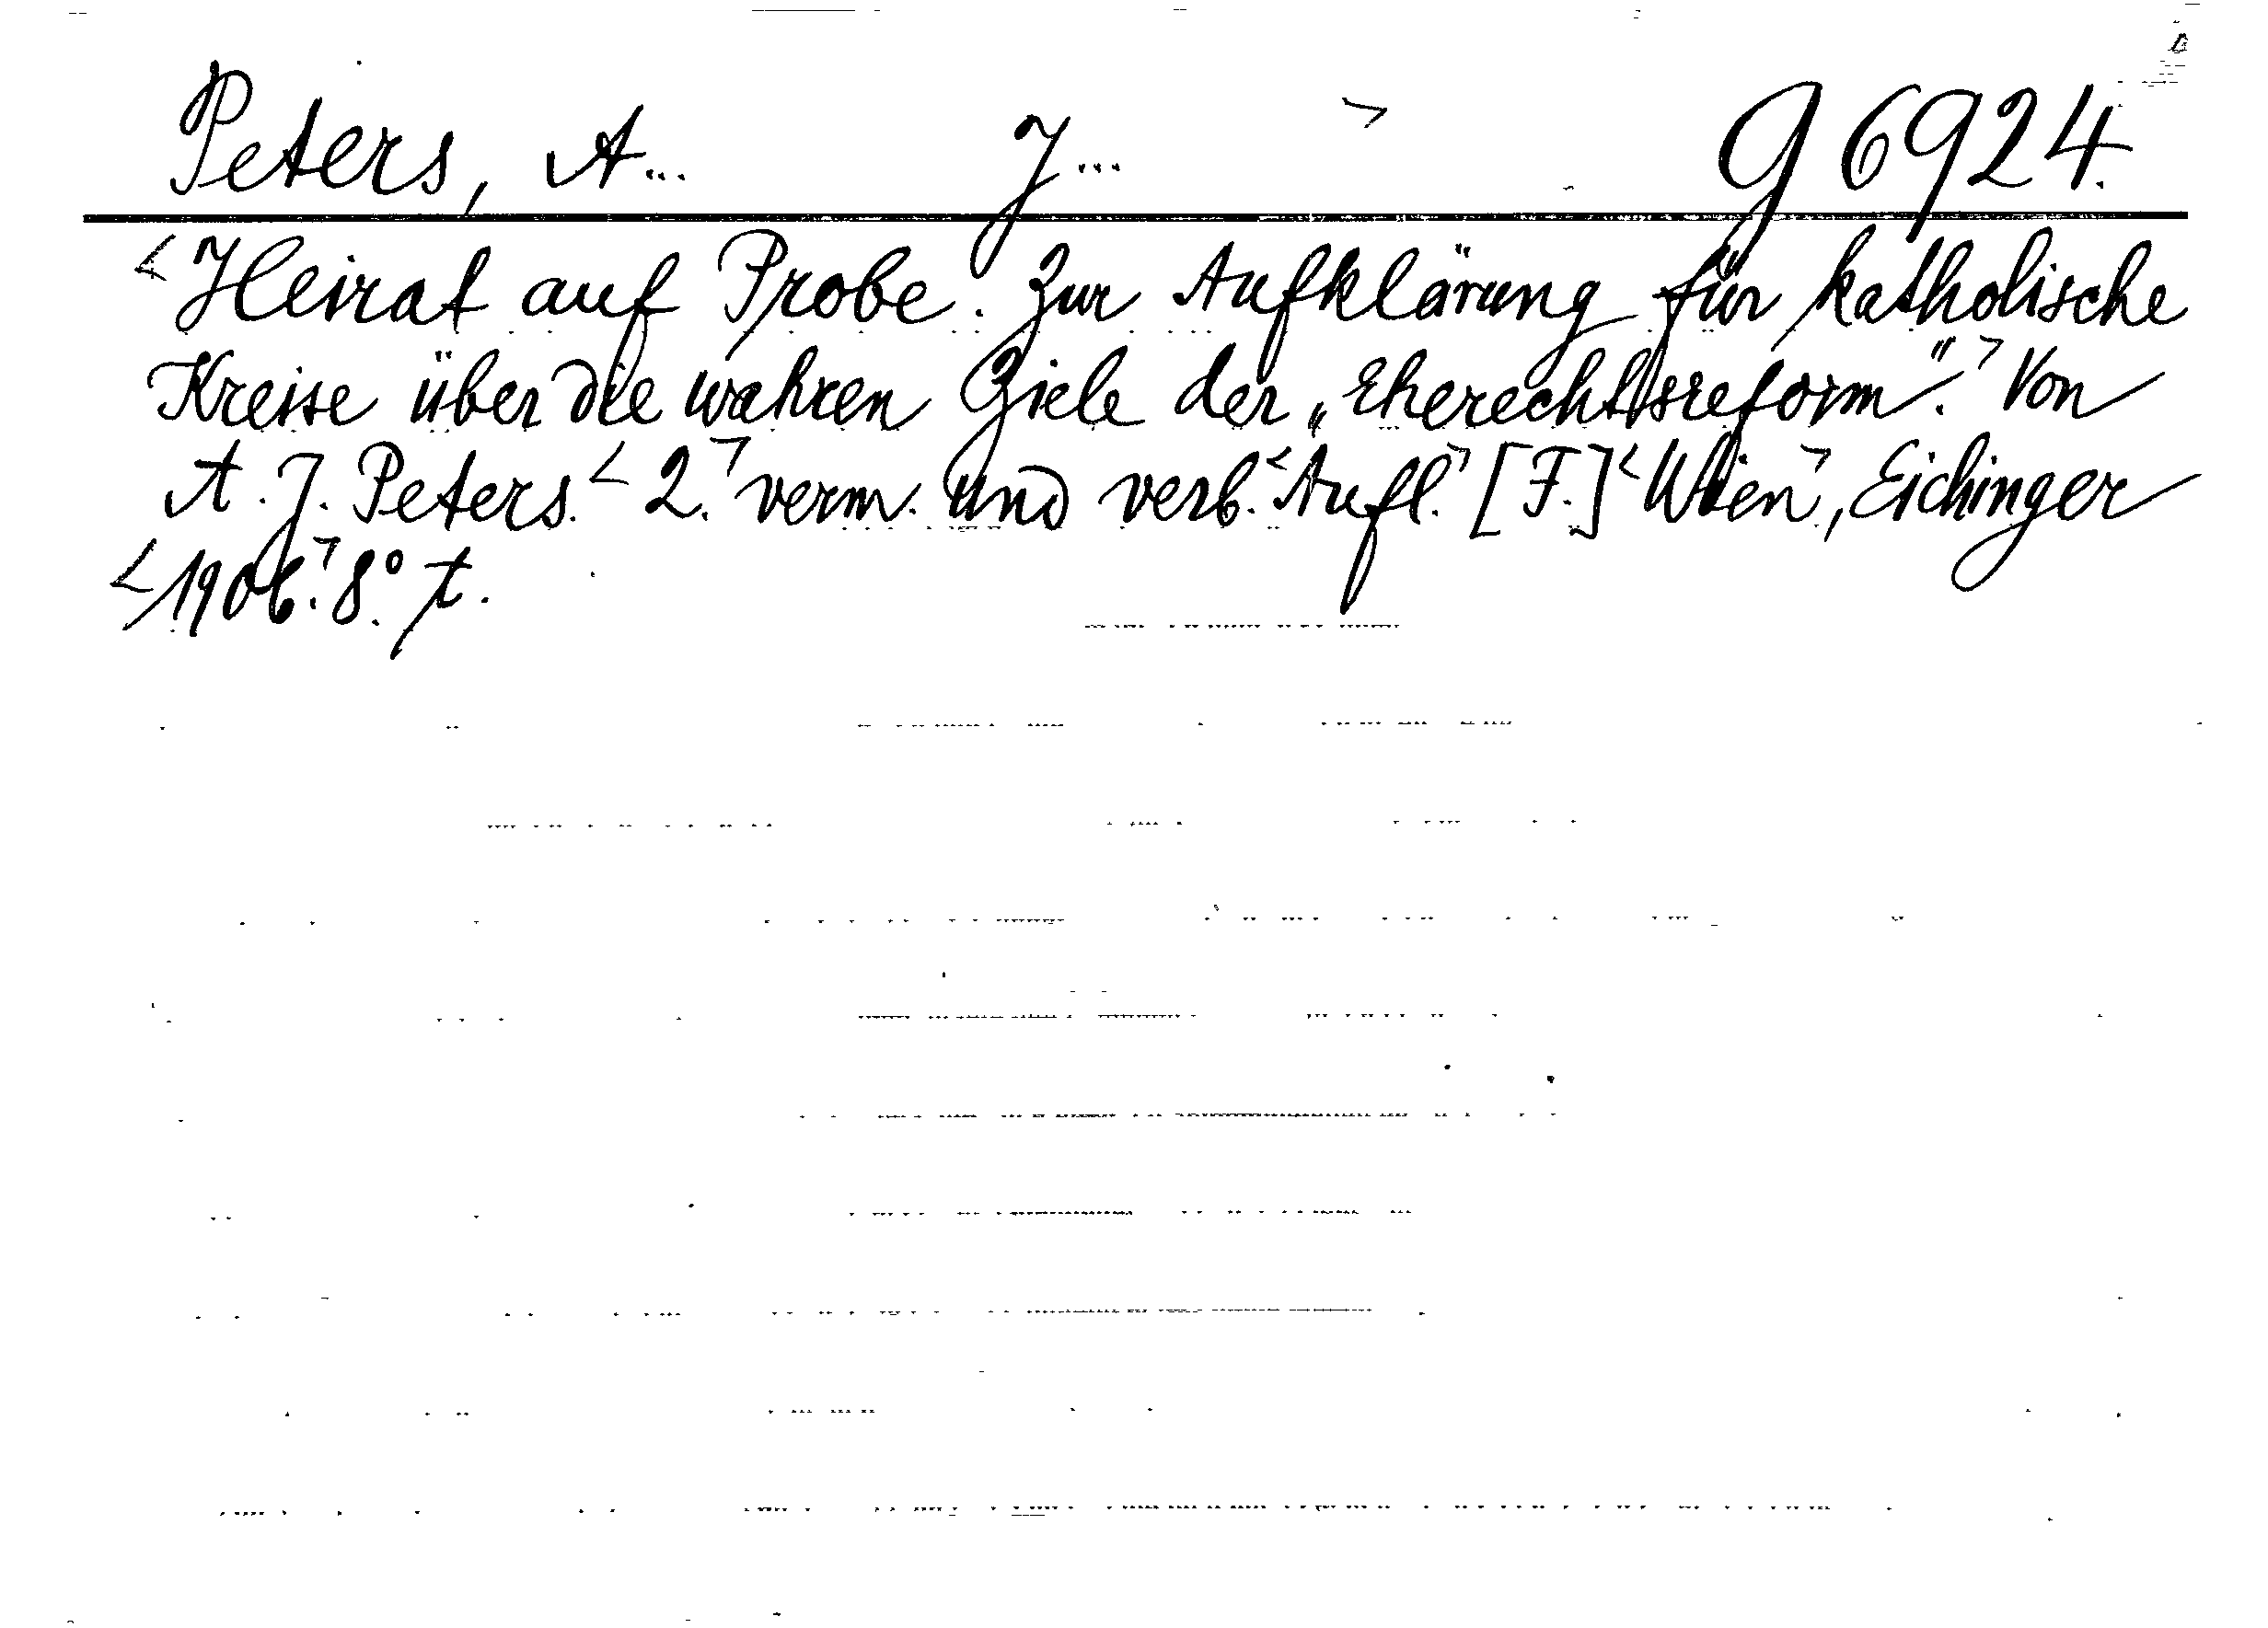 Peters, A... J... > g 6924.
<Heirat auf Probe. Zur Aufklärung für katholische
Kreise über die wahren Ziele der „Eherechtsreform“.> Von
A. J. Peters. <2.> verm. und verb. <Aufl.> [F.] <Wien>, Eichinger
<1906.> 8° t.